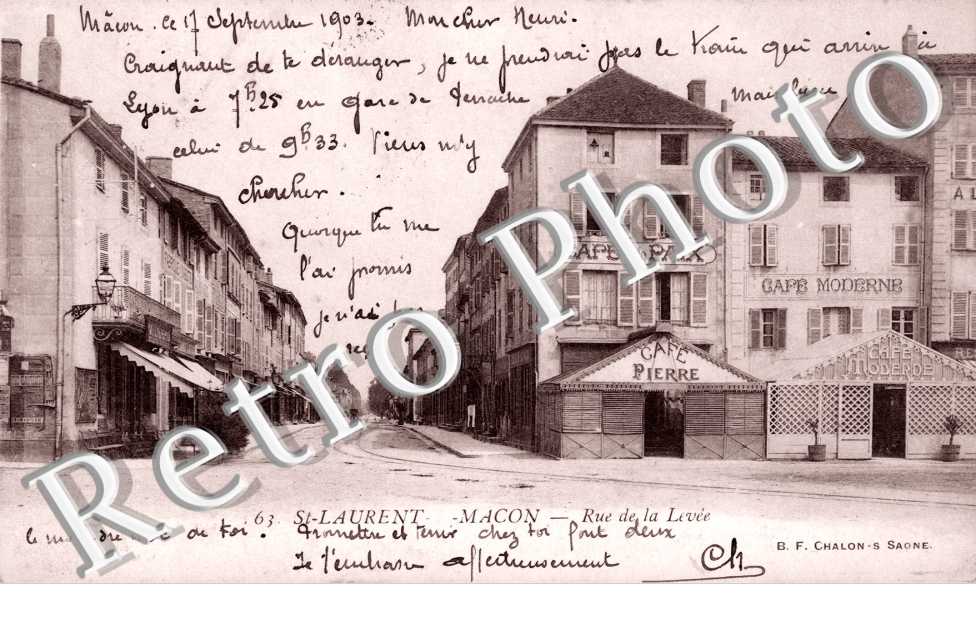 Mâcon. Ce 17 Septembre 1903. Mon cher Henri.
Craignant de te déranger, je ne prendrai pas le train qui arrive à
Lyon à 7h25 en Gare de Perrache mais
celui de 9h33. Viens m'y
chercher.
Quoique tu me
l'ai promis
je n'ai
CAFE PAIX
CAFE MODERNE
CAFE
PIERRE
CAFE
MODERNE
Retro Photo
63 St-LAURENT -MACON — Rue de la Levée
le de toi. Promettre et tenir chez toi font deux
Je t'embrasse affectueusement
Ch
B. F. CHALON-S SAONE.